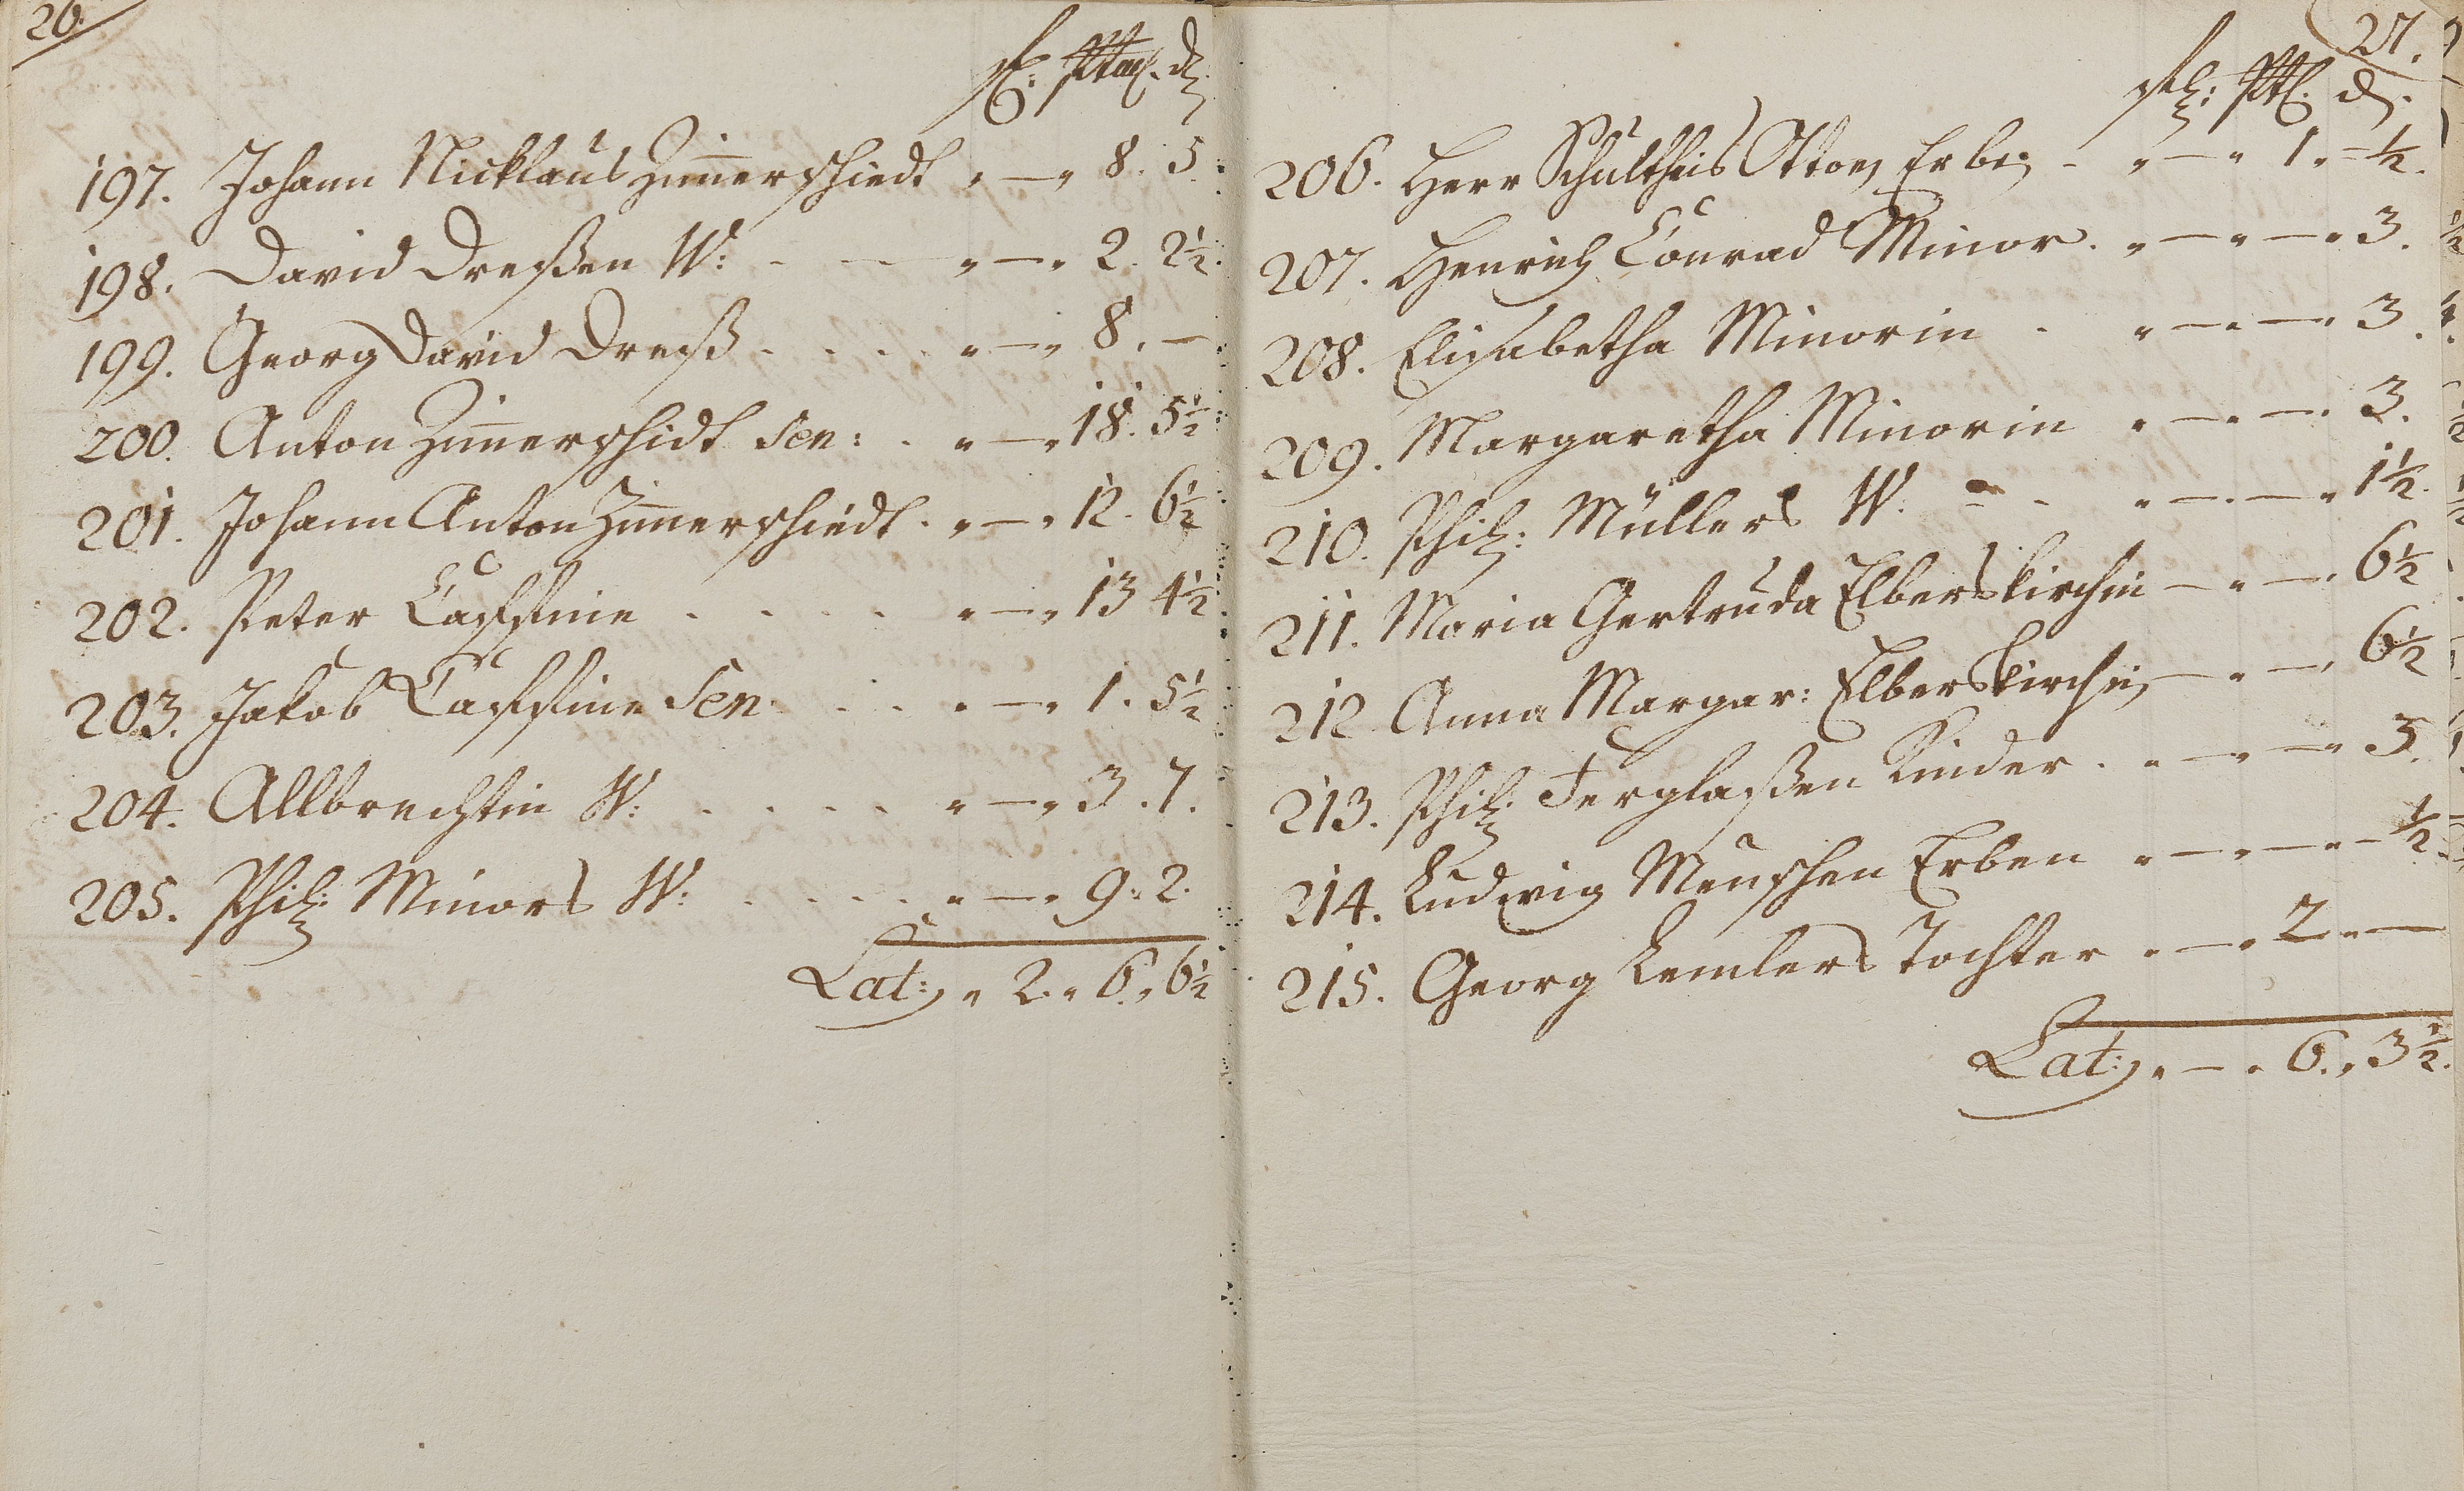 26.
fl: Sttaf. d.
197. Johann Nicklaus Zim̅erschiedt „ — „ 8. 5.
198. David Dreßen W: - — „ — „ 2. 2½.
199. Georg David Dreiß . . . . „ — „ 8. —.
200. Anton Zim̅erschidt Sen: . „ — „ 18. 5½
201. Johann Anton Zim̅erschiedt . „ — „ 12. 6½
202. Peter Cassine . . . . „ — „ 13 4½.
203. Jakob Cassine Sen. . . „ — „ 1. 5½
204. Allbrechtin W: . . . . „ — „ 3. 7.
205. Phil: Minors W: . . . . „ — „ 9. 2.
Lat: „ 2. „ 6. „ 6½
27.
d.
206. Herr Schultheis Otton Erben - „ — „ 1. - ½.
207. Henrich Conrad Minor. „ — „ — „ 3.
208. Elisabetha Minorin - „ — „ — „ 3.
209. Margaretha Minorin „ — „ — „ 3.
210. Phil: Müllers W. - - „ — „ — „ 1½.
211. Maria Gertruda Elberskirchin — „ — „ 6½
212 Anna Margar: Elberskirchin — „ — „ 6½
213. Phil: Ferglaßen Kinder. „ — „ — „ 5.
214. Ludwig Menschen Erben „ — „ — „ — ½.
215. Georg Lemlers Tochter „ — „ 2 „ —
Lat: „ — „ 6. „ 3½.